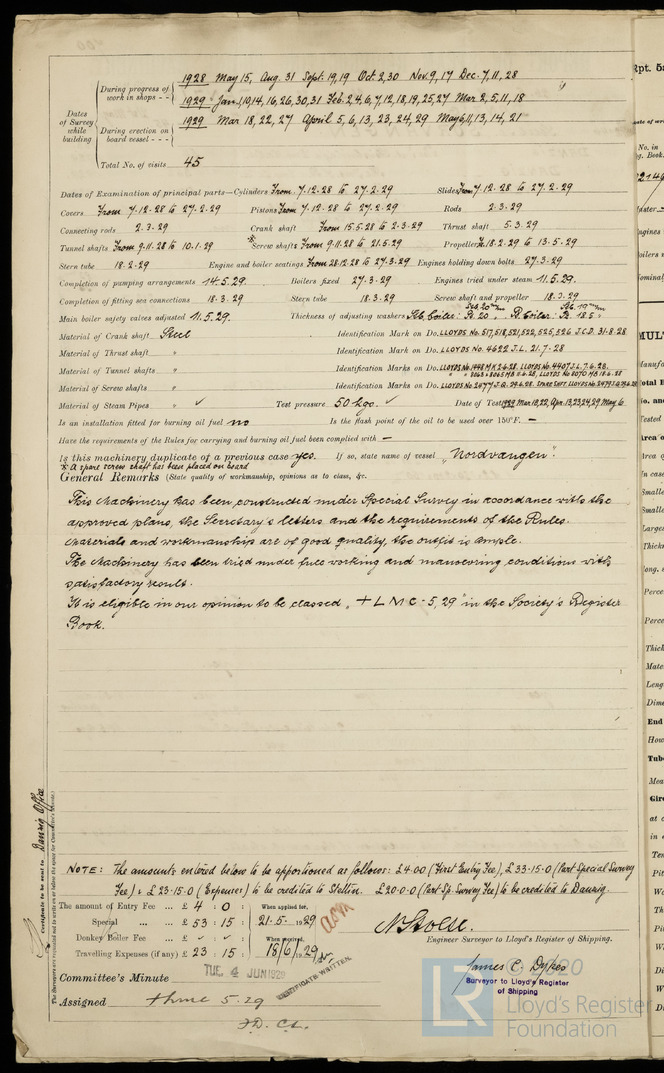 1928 May 15, Aug. 31 Sept. 19, 19 Oct 2, 30 Nov. 9, 17 Dec. 7, 11, 28
During progress of work in shops - -
1929 Jan. 10, 14, 16, 26, 30, 31 Feb. 2, 4, 6, 7, 12, 18, 19, 25, 27 Mar 2, 5, 11, 18
Dates of Survey while building
1929 Mar 18, 22, 27 April 5, 6, 13, 23, 24, 29 May 6, 11, 13, 14, 21
During erection on board vessel - - -
Total No. of visits 45
Dates of Examination of principal parts—Cylinders From 7.12.28 to 27.2.29 Slides From 7.12.28 to 27.2.29
Covers From 7.12.28 to 27.2.29 Pistons From 7.12.28 to 27.2.29 Rods 2.3.29
Connecting rods 2.3.29 Crank shaft From 15.5.28 to 2.3.29 Thrust shaft 5.3.29
Tunnel shafts From 9.11.28 to 10.1.29 * Screw shafts From 9.11.28 to 21.5.29 Propeller 18.2.29 to 13.5.29
Stern tube 18.2.29 Engine and boiler seatings From 28.12.28 to 27.3.29 Engines holding down bolts 27.3.29
Completion of pumping arrangements 14.5.29. Boilers fixed 27.3.29 Engines tried under steam 11.5.29.
Completion of fitting sea connections 18.3.29 Stern tube 18.3.29 Screw shaft and propeller 18.3.29
Main boiler safety valves adjusted 11.5.29. Thickness of adjusting washers
Material of Crank shaft Steel Identification Mark on Do. LLOYDS No. 517, 518, 521, 522, 525, 326 J.C.D. 31.8.28
Material of Thrust shaft " Identification Mark on Do. LLOYDS No. 4622 J.L. 21.7.28
Material of Tunnel shafts " Identification Marks on Do.
Material of Screw shafts " Identification Marks on Do.
Material of Steam Pipes " ✓ Test pressure 50 kgo. ✓ Date of Test 1929 Mar. 18, 22, Apr. 13, 23, 24, 29 May 6
Is an installation fitted for burning oil fuel no Is the flash point of the oil to be used over 150°F. —
Have the requirements of the Rules for carrying and burning oil fuel been complied with —
Is this machinery duplicate of a previous case yes. If so, state name of vessel „Nordvangen".
* A spare screw shaft has been placed on board
General Remarks (State quality of workmanship, opinions as to class, &c.
This Machinery has been constructed under Special Survey in accordance with the
approved plans, the Secretary's letters and the requirements of the Rules.
Materials and workmanship are of good quality, the outfit is ample.
The Machinery has been tried under full working and manoevring conditions with
satisfactory result.
It is eligible in our opinion to be classed „ + L M C - 5, 29 " in the Society's Register
Book.
Certificate to be sent to Danzig Office
NOTE: The amounts entered below to be apportioned as follows: £4.0.0 (First Entry Fee), £33.15.0 (Part Special Survey
Fee) & £23.15.0 (Expenses) to be credited to Stettin. £20.0.0 (Part Sp. Survey Fee) to be credited to Danzig.
The amount of Entry Fee ... £ 4 : 0 : When applied for,
Special ... £ 53 : 15 : 21.5.1929
Donkey Boiler Fee ... £ When received,
Travelling Expenses (if any) £ 23 : 15 : 18/6/1929
N Stolse.
Engineer Surveyor to Lloyd's Register of Shipping.
James E. Dykes
Surveyor to Lloyd's Register
of Shipping
Committee's Minute TUE 4 JUN 1929
CERTIFICATE WRITTEN.
Assigned + lmc 5.29
F.D. C.L.
© 2020
LR
Lloyd's Register
Foundation